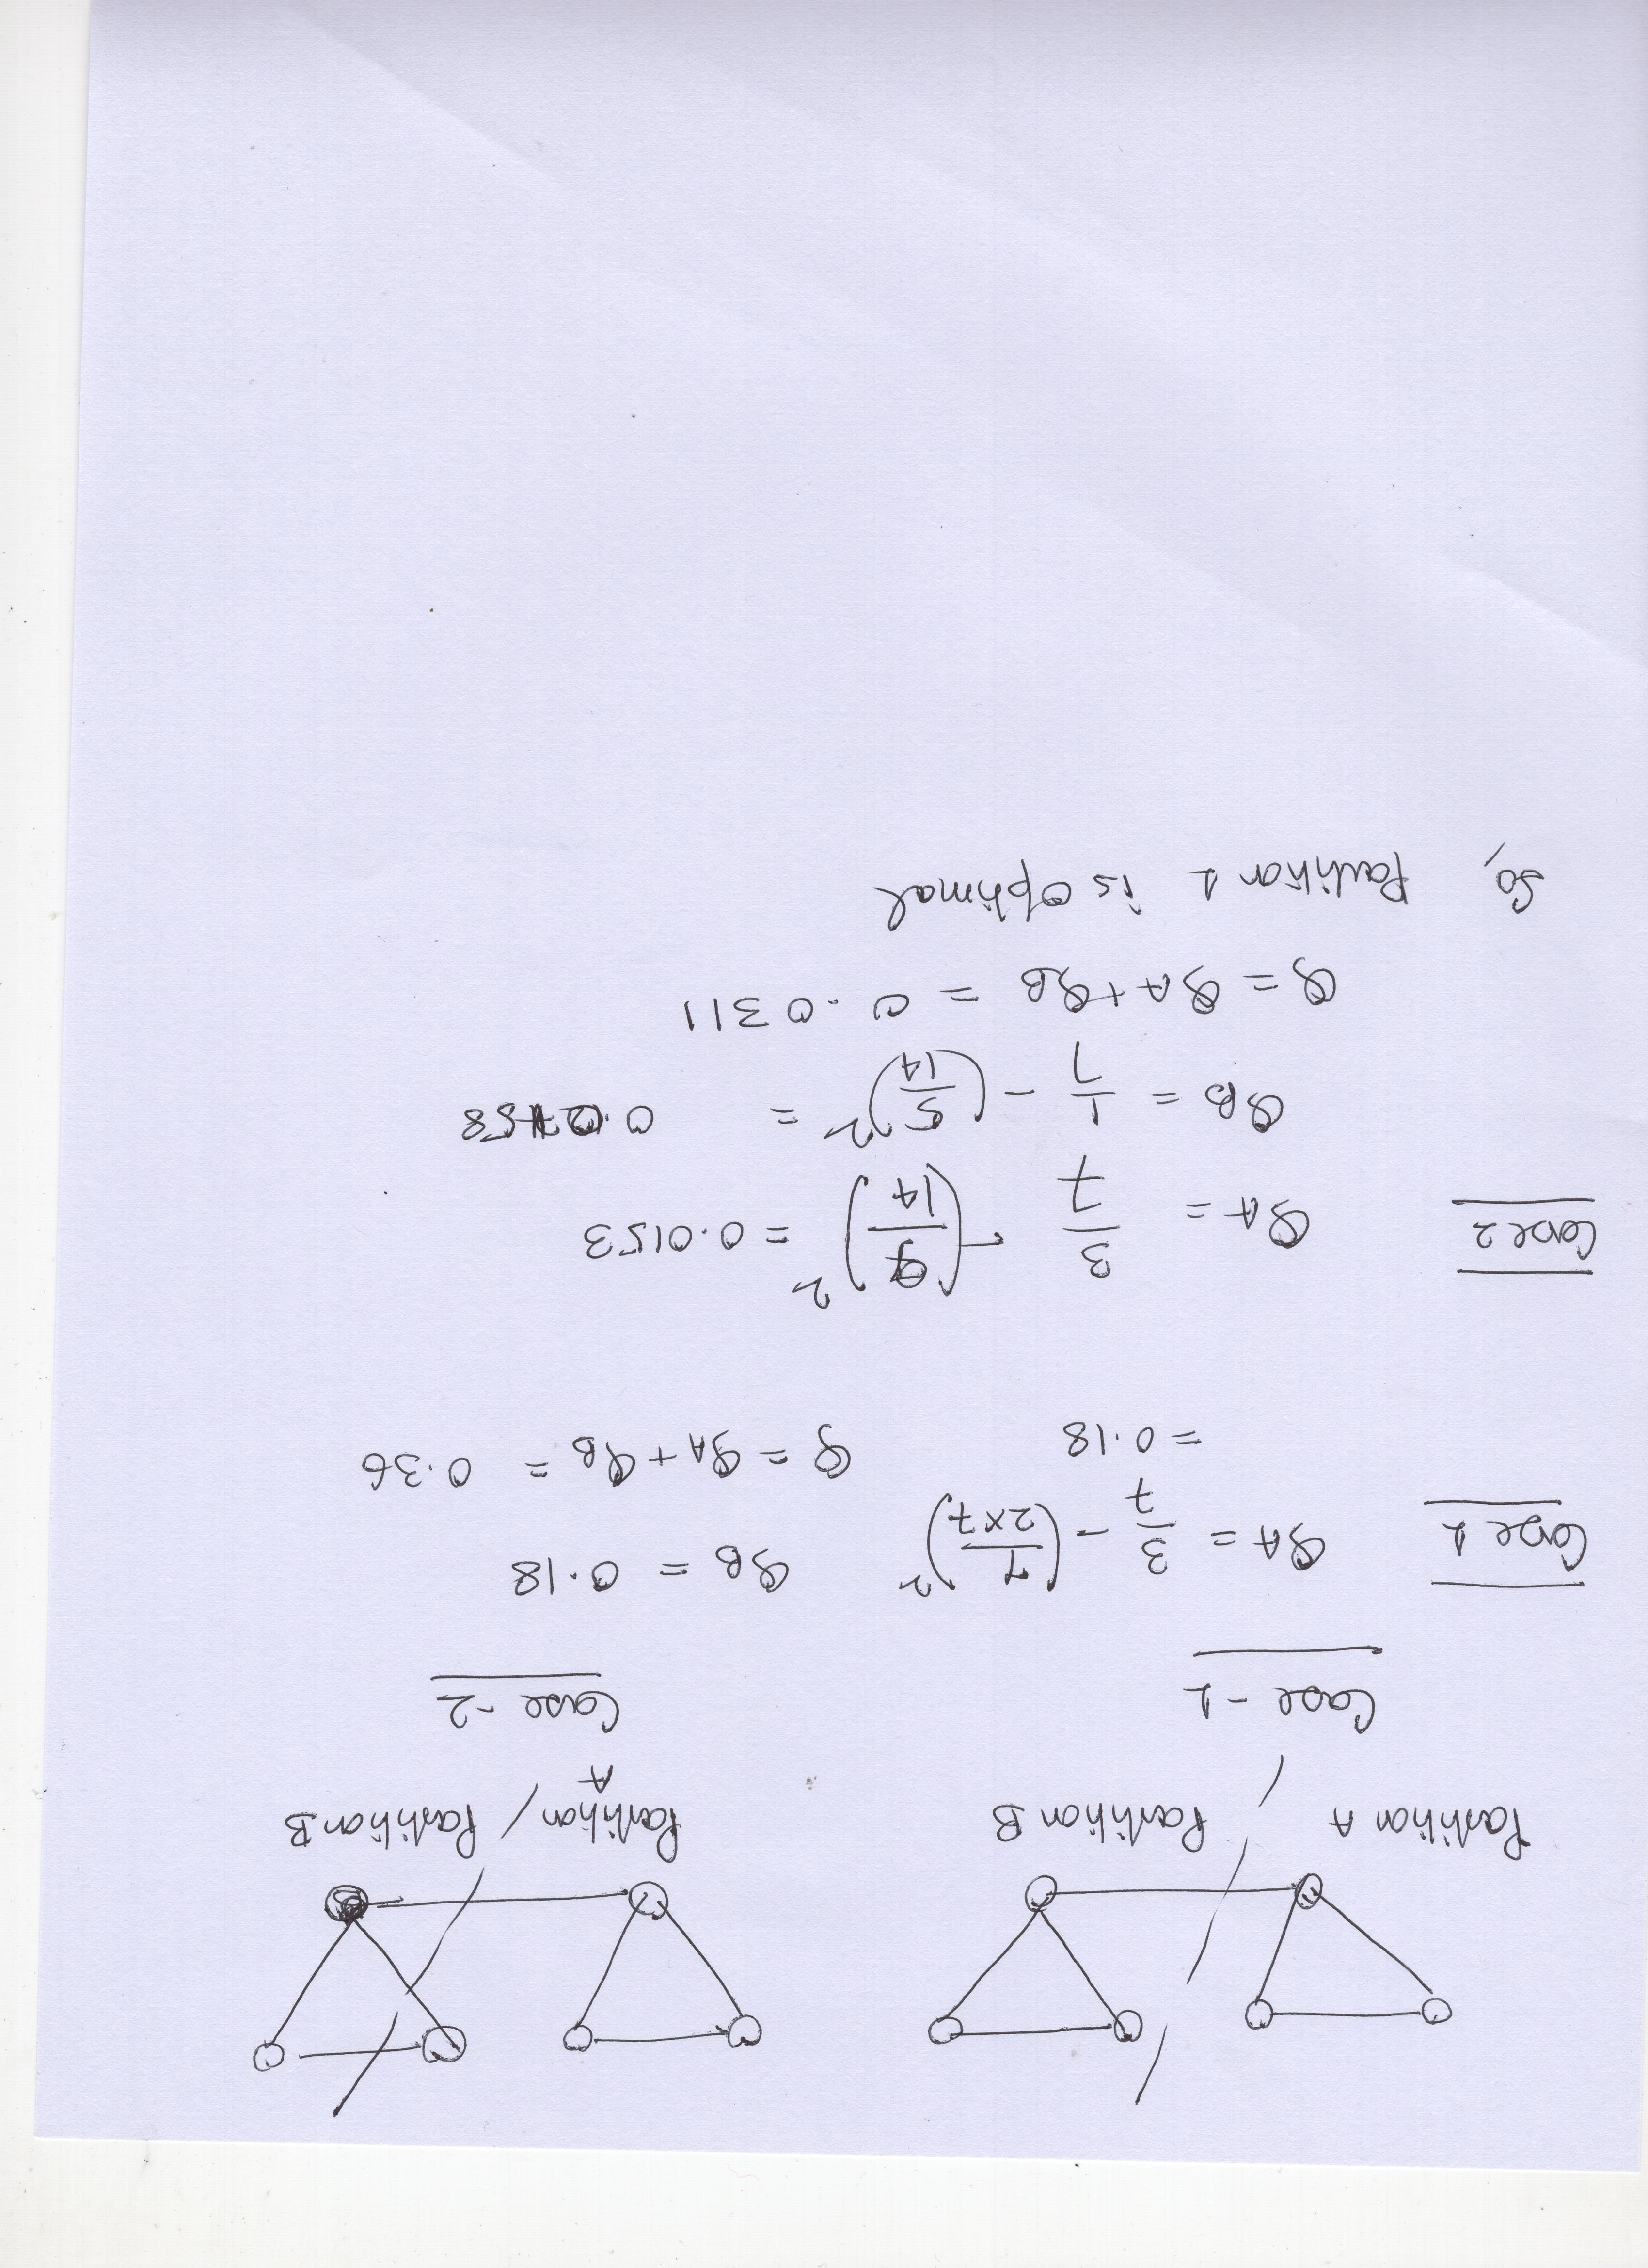 Partition A / Partition B
Partition A / Partition B
Case-1
Case-2
Case 1 QA = 3/7 - (7/(2×7))² QB = 0.18
= 0.18 Q = QA + QB = 0.36
Case 2 QA = 3/7 - (9/14)² = 0.0153
QB = 1/7 - (5/14)² = 0.0158
Q = QA + QB = 0.0311
So, Partition 1 is optimal